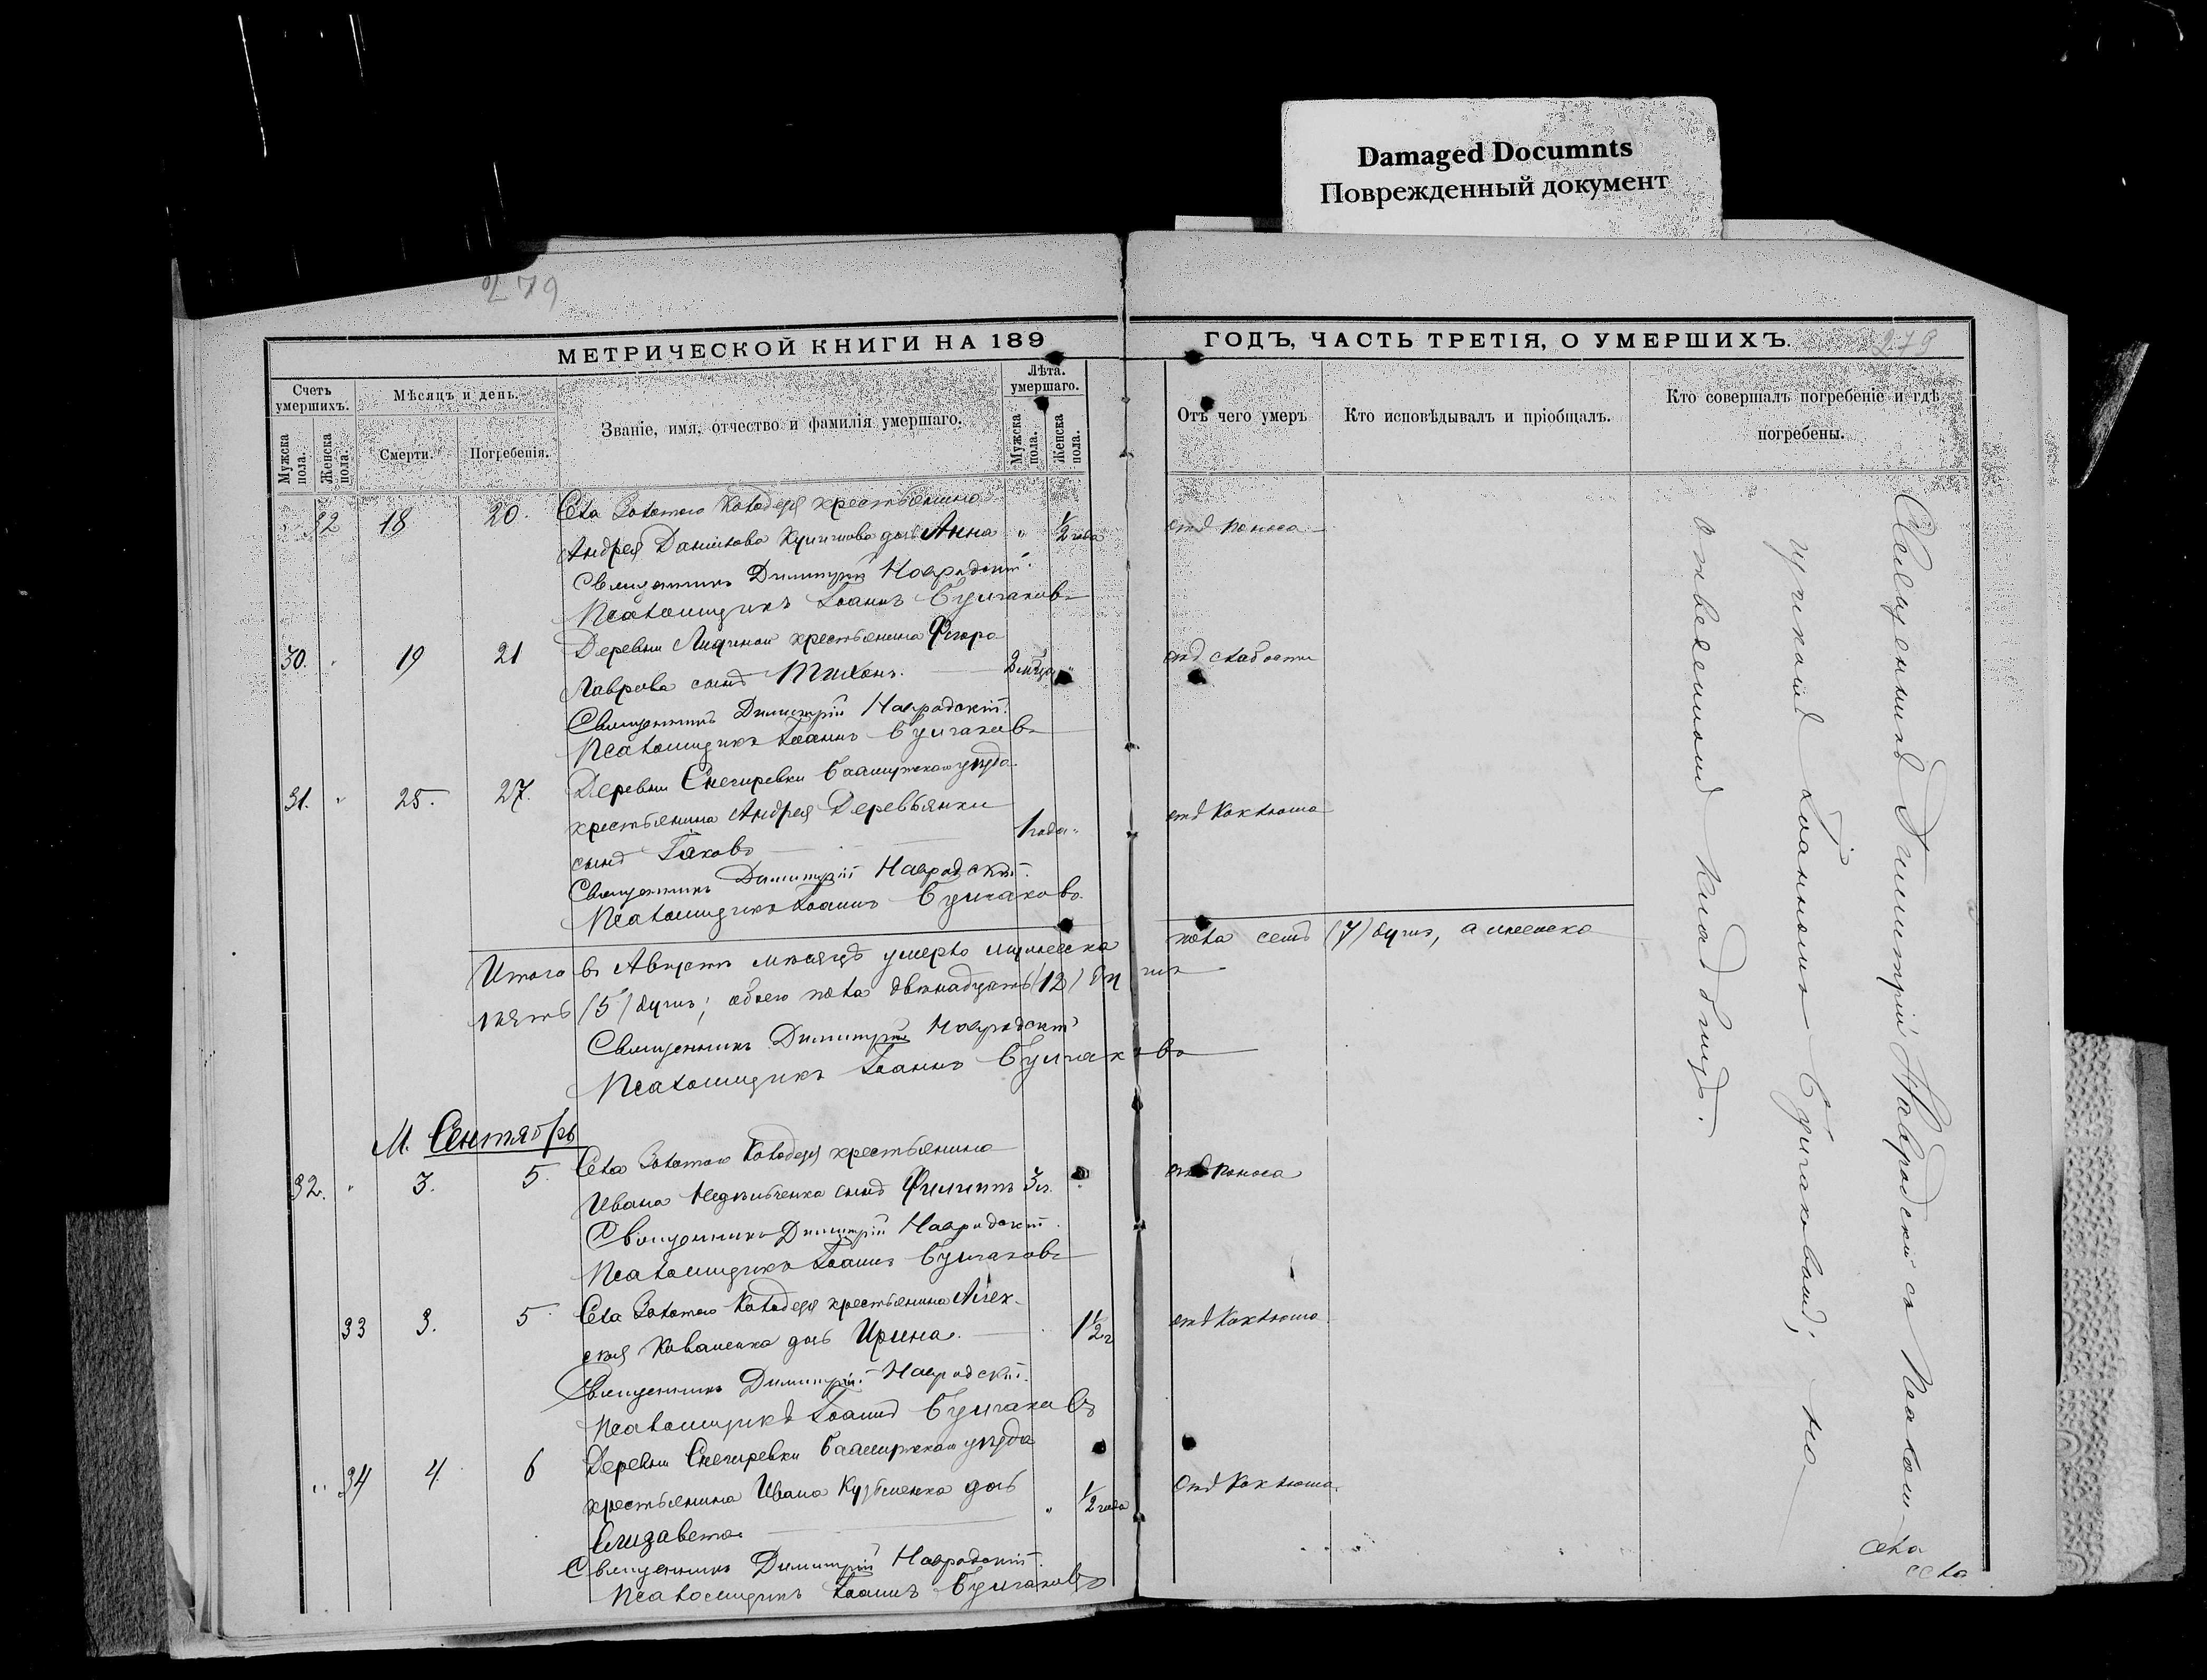 Damaged Documnts
Поврежденный документ
279
МЕТРИЧЕСКОЙ КНИГИ НА 189
ГОДЪ, ЧАСТЬ ТРЕТІЯ, О УМЕРШИХЪ.
279
Счетъ умершихъ.
Мужска пола.
Женска пола.
Мѣсяцъ и день.
Смерти.
Погребенія.
Званіе, имя, отчество и фамилія умершаго.
Лѣта. умершаго.
Мужска пола.
Женска пола.
Отъ чего умеръ
Кто исповѣдывалъ и пріобщалъ.
Кто совершалъ погребеніе и гдѣ погребены.
32 18 20. Села Золотого Колодезя крестьянина
Андрея Данилова дочь Анна " 1/2 года отъ поноса
Священникъ Димитрій Навродскій.
Псаломщикъ Іоаннъ Булгаковъ
30. " 19 21 Деревни крестьянина
Лаврова сынъ Тихонъ. отъ слабости
Священникъ Димитрій Навродскій.
Псаломщикъ Іоаннъ Булгаковъ
31. " 25. 27. Деревни Снегиревки Бахмутскаго уѣзда
крестьянина Андрея Деревьянки
сынъ Іаковъ 1 года " отъ коклюша
Священникъ Димитрій Навродскій.
Псаломщикъ Іоаннъ Булгаковъ.
Итого въ Августѣ мѣсяцѣ умерло мужеска пола семь (7) душъ, а женска
пять (5) душъ; обоего пола двѣнадцать (12) душъ
Священникъ Димитрій Навродскій
Псаломщикъ Іоаннъ Булгаковъ
М. Сентябрь
32. " 3. 5. Села Золотого Колодезя крестьянина
Ивана сынъ Филиппъ 3 г. отъ поноса
Священникъ Димитрій Навродскій.
Псаломщикъ Іоаннъ Булгаковъ
33 3. 5 Села Золотого Колодезя крестьянина Алек-
сѣя Коваленка дочь Ирина. 1 1/2 г отъ коклюша
Священникъ Димитрій Навродскій.
Псаломщикъ Іоаннъ Булгаковъ
" 34 4 6 Деревни Снегиревки Бахмутскаго уѣзда
крестьянина Ивана дочь
Елизавета " 1/2 года отъ коклюша.
Священникъ Димитрій Навродскій.
Псаломщикъ Іоаннъ Булгаковъ
Священникъ Димитрій Навродскій съ Псалом-
щикомъ Іоанномъ Булгаковымъ; на
кладбищѣ.